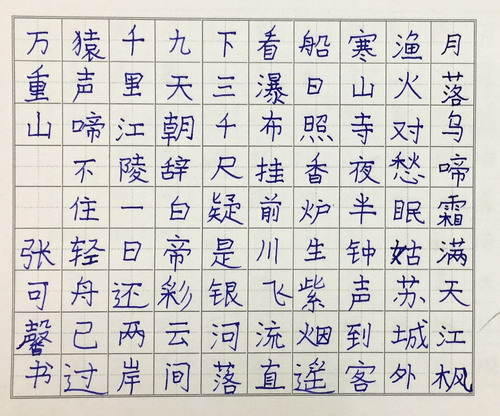 月落乌啼霜满天江枫
渔火对愁眠姑苏城外
寒山寺夜半钟声到客
船日照香炉生紫烟遥
看瀑布挂前川飞流直
下三千尺疑是银河落
九天朝辞白帝彩云间
千里江陵一日还两岸
猿声啼不住轻舟已过
万重山 张可馨书